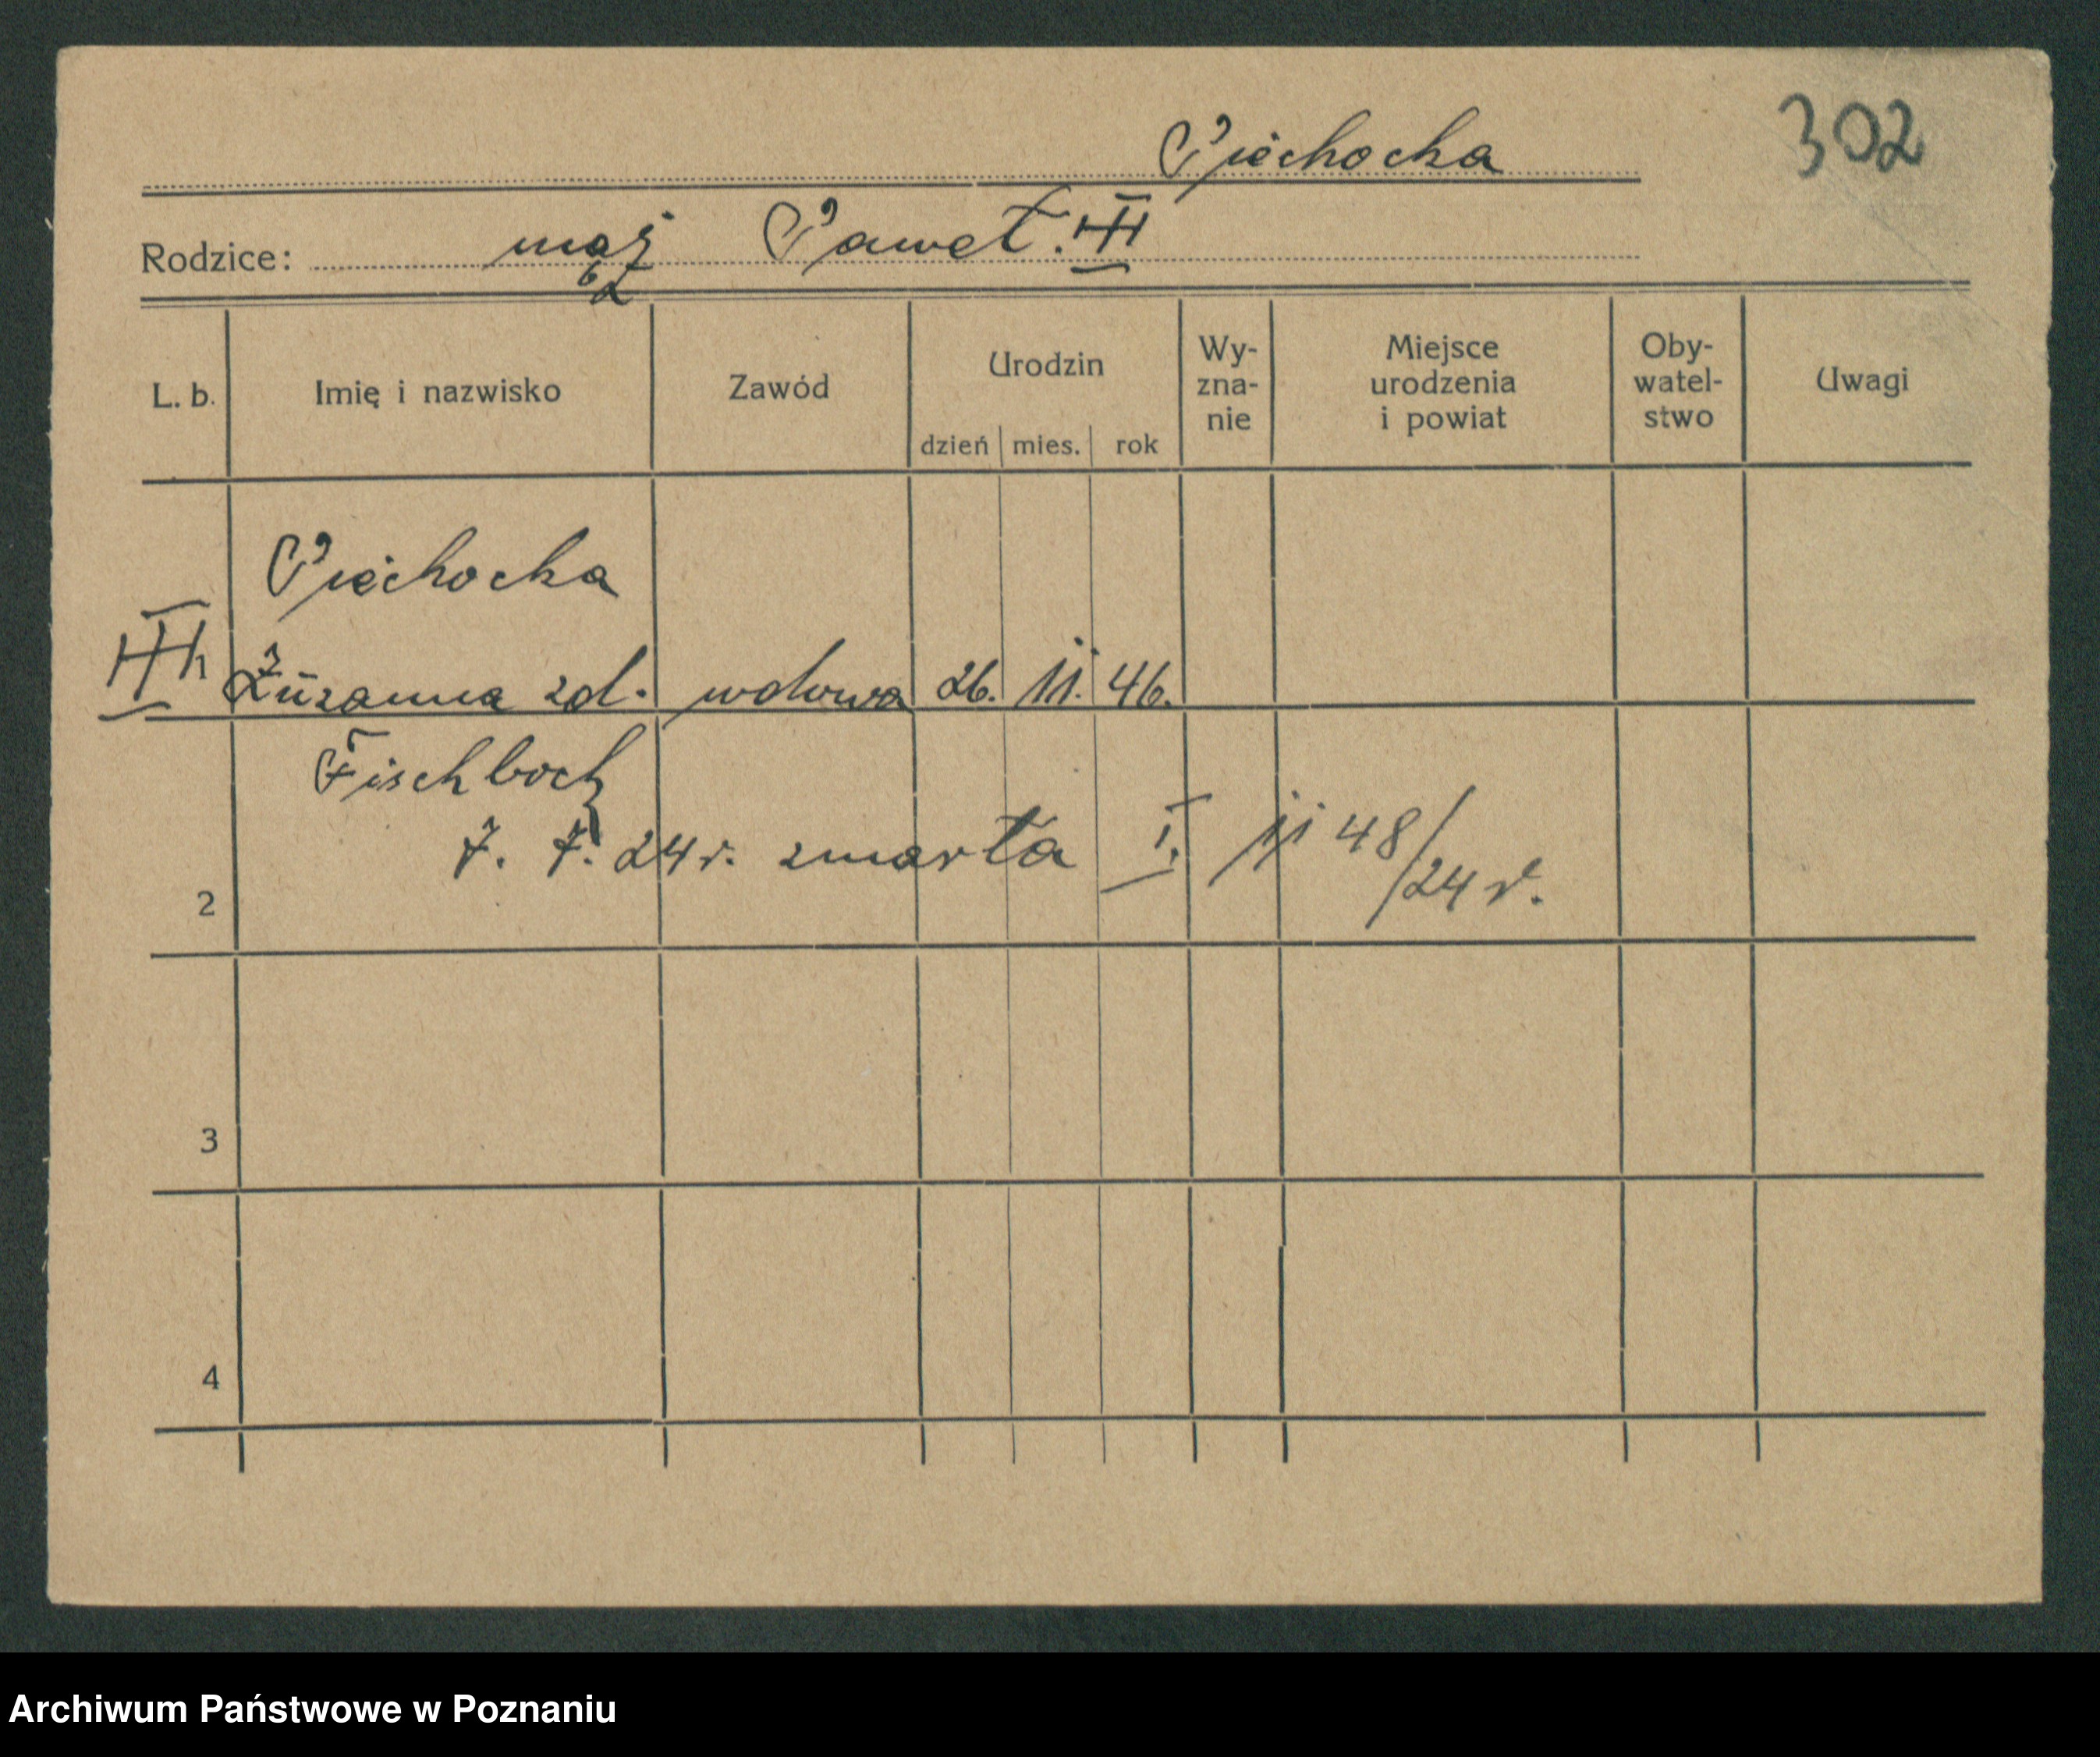 302
Piechocka
Rodzice: mąż Paweł. III
L. b. Imię i nazwisko Zawód Urodzin dzień mies. rok Wy-zna-nie Miejsce urodzenia i powiat Oby-watel-stwo Uwagi
Piechocka
Zuzanna zd. wdowa 26. 11. 46.
Fischbock
7. 7. 24 r. zmarła I. 48/24 r.
2
3
4
Archiwum Państwowe w Poznaniu